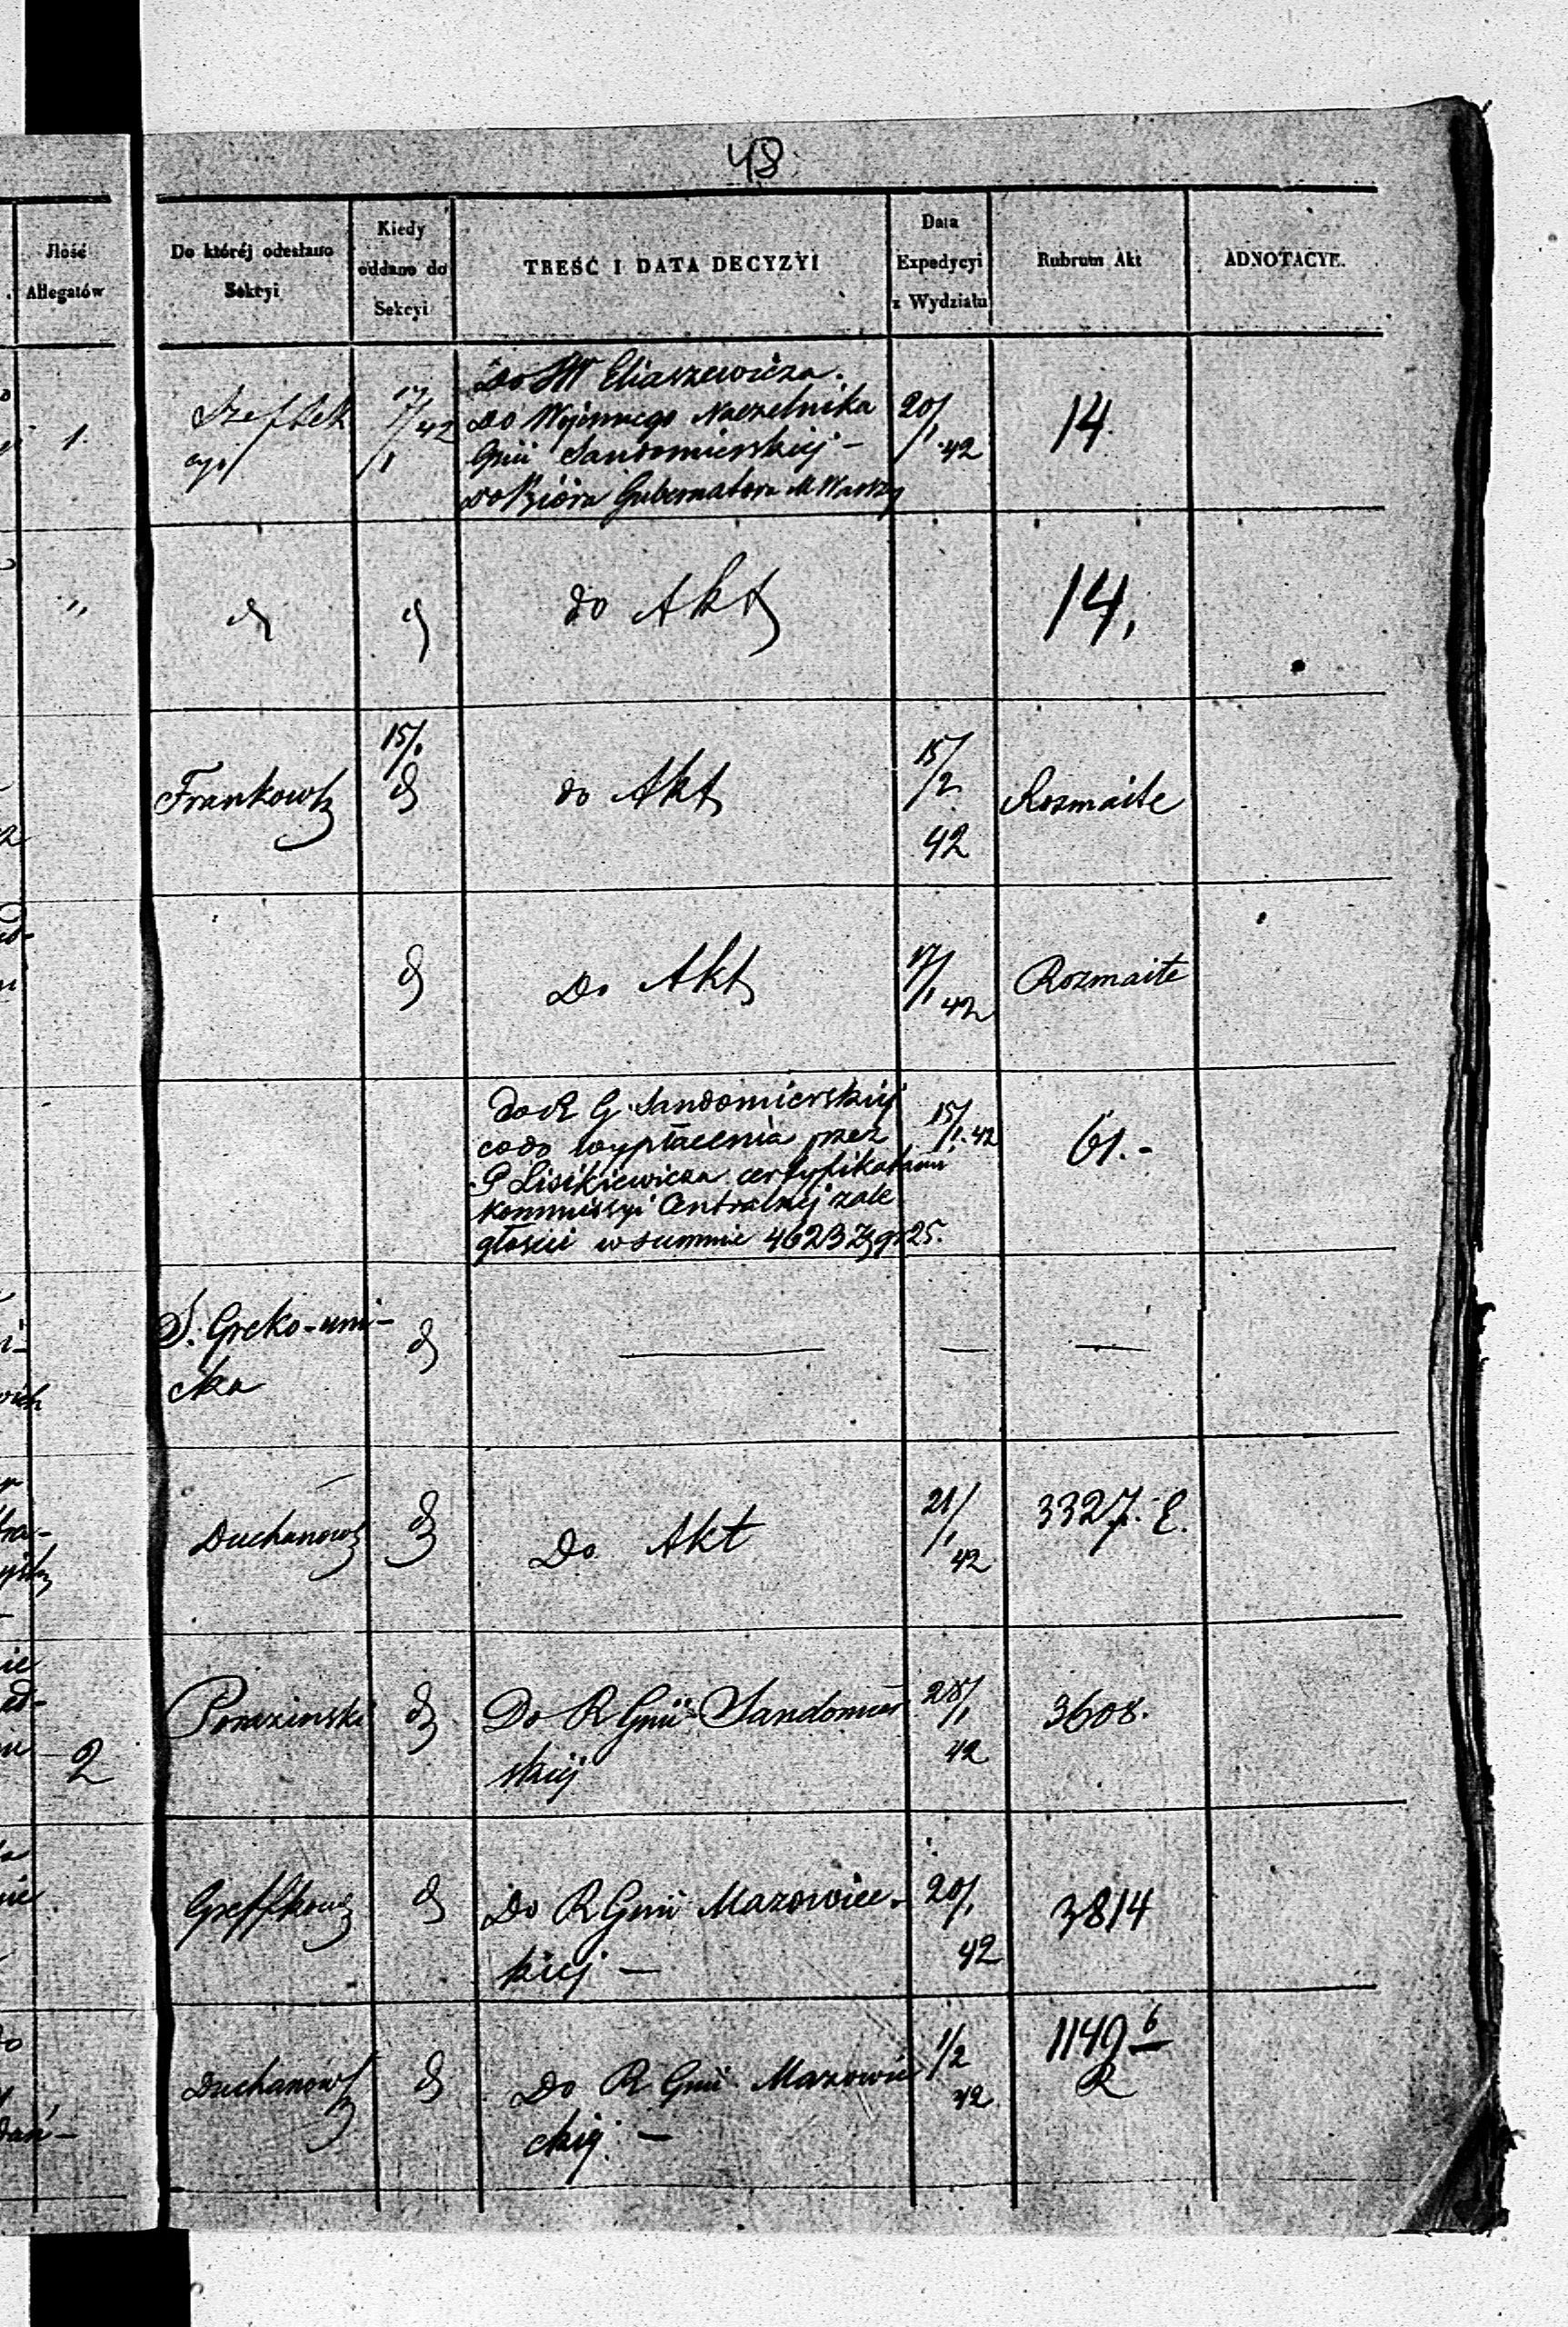 48
Jlość
Allegatów
Do któréj odesłano
Sekcyi
Kiedy
oddano do
Sekcyi
TREŚĆ I DATA DECYZYI
Data
Expedycyi
z Wydziału
Rubrum Akt
ADNOTACYE.
1.
Szef Sek
cyi
17/1 42
Do JW Eliaszewicza.
Do Wojennego Naczelnika
Gnii Sandomierskiej –
Do Bióra Gubernatora M Warszy
20/1 42
14.
"
d
d
do Akt
14.
Frankows
15/1
d
do Akt
15/2
42
Rozmaite
d
Do Akt
17/1 42
Rozmaite
do R G. Sandomierskiej
co do wypłacenia przez
P Lisikiewicza certyfikatami
Kommissyi Centralnej zale
głości w summie 4623 Z gr 25.
15/1. 42
61.-
S. Greko-uni-
cka
d
Duchanows
d
Do Akt
21/1
42
3327. E.
2
d
Do R Gnii Sandomier
skiej
28/1
42
3608.
d
Do R Gnii Mazowiec-
kiej –
20/1
42
3814
Duchanows
d
Do R Gnii Mazowie
ckiej. –
1/2
42
1149 6
R